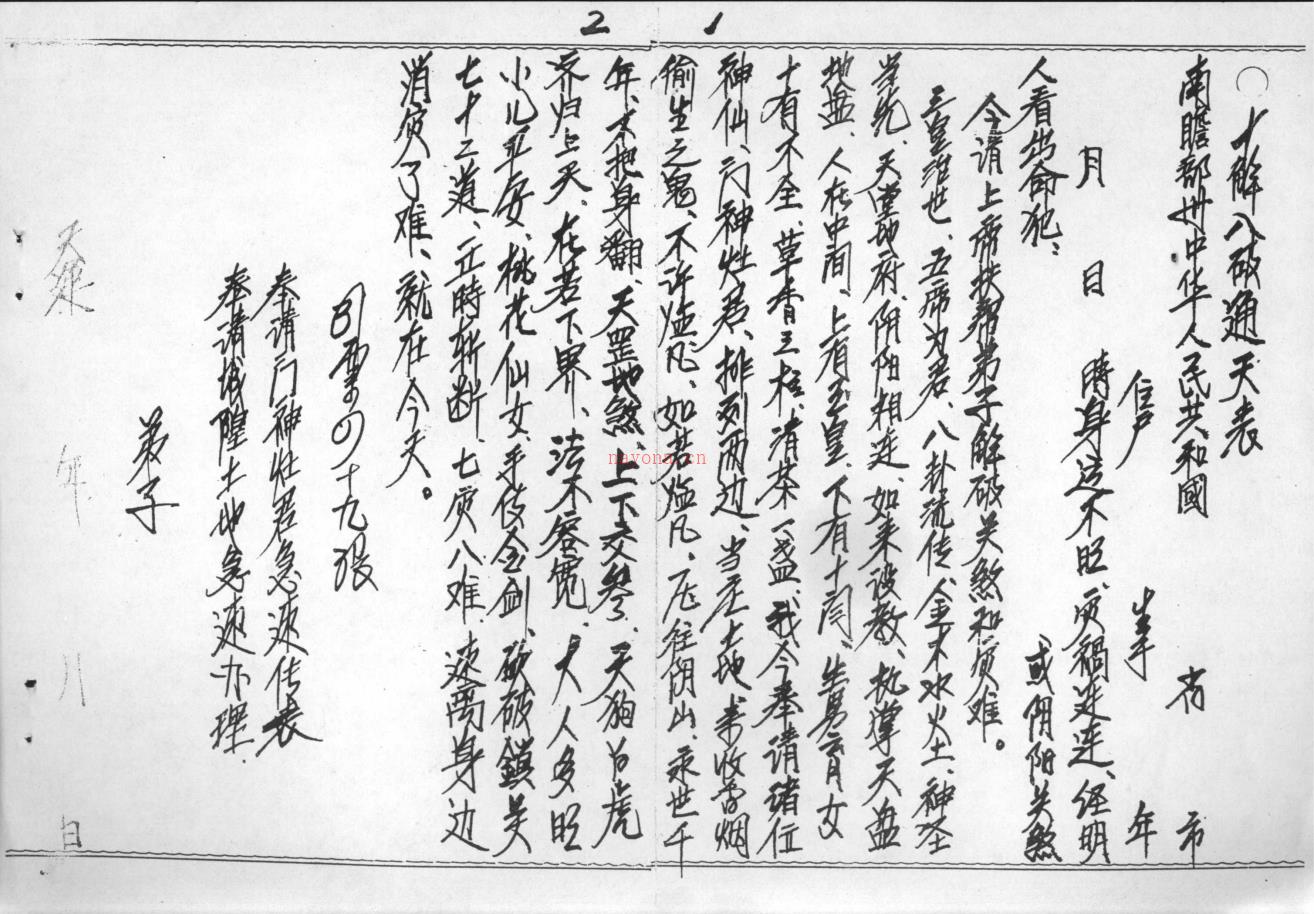 2 1
十解八破通天表
南瞻部卅中华人民共和國 省 市
住户 生年 年
月 日 時身运不旺、灾禍连连、经明
人看出命犯： 或阴阳关煞
今请上帝扶帮弟子解破关煞和灾难。
三皇治世、五帝为君、八卦流传、金木水火土、神圣
学先、天堂地府、阴阳相连、如来设教、执掌天盘
地盘、人在中间、上有玉皇、下有十阎、生男育女
十有不全、草香三柱、清茶一盏、我今奉请诸位
神仙、门神灶君、排列两边、当庄土地来收香烟
偷生之鬼、不许临凡、如若临凡、压往阴山、永世千
年、不把身翻、天罡地煞、上下交参、天狗白虎
齐归上天、在若下界、法不容宽、大人多旺
小儿平安、桃花仙女、手使金剑、砍破鎖关
七十二道、立時斩断、七灾八难、速离身边
消灾了难、就在今天。
奉请门神灶君急速传表
奉请城隍土地急速办理.
弟子
天運 年 月 日
nayona.cn